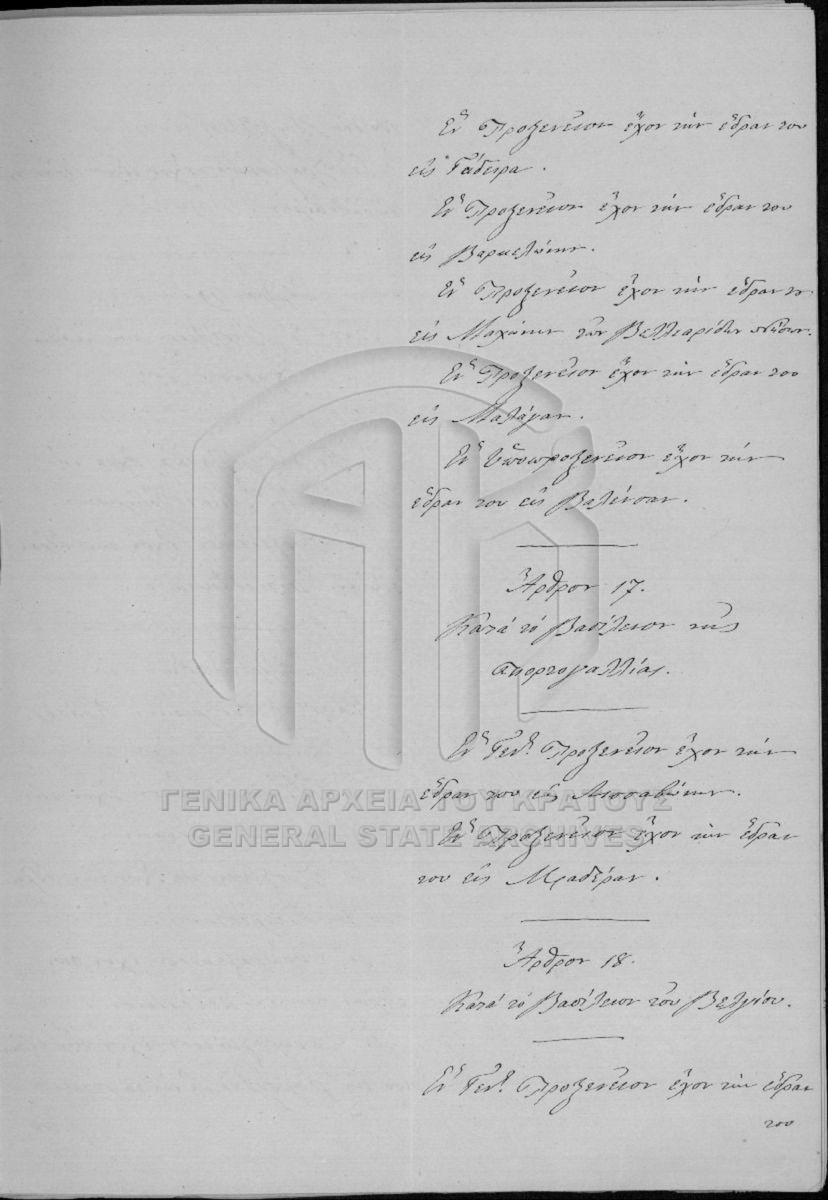 Ἓν Προξενεῖον ἔχον τὴν ἕδραν του
εἰς Γάδειρα.
Ἓν Προξενεῖον ἔχον τὴν ἕδραν του
εἰς Βαρκελώνην.
Ἓν Προξενεῖον ἔχον τὴν ἕδραν του
εἰς Μαχώνην τῶν Βελλεαρίδων νήσων.
Ἓν Προξενεῖον ἔχον τὴν ἕδραν του
εἰς Μαλάγαν.
Ἓν Ὑποπροξενεῖον ἔχον τὴν
ἕδραν του εἰς Βαλένσαν.
Ἄρθρον 17.
Κατὰ τὸ Βασίλειον τῆς
Πορτογαλλίας.
Ἓν Γενλ. Προξενεῖον ἔχον τὴν
ἕδραν του εἰς Λισσαβώνην.
ΓΕΝΙΚΑ ΑΡΧΕΙΑ ΤΟΥ ΚΡΑΤΟΥΣ
GENERAL STATE ARCHIVES
Ἓν Προξενεῖον ἔχον τὴν ἕδραν
του εἰς Μαδέραν.
Ἄρθρον 18.
Κατὰ τὸ Βασίλειον τοῦ Βελγίου.
Ἓν Γενλ. Προξενεῖον ἔχον τὴν ἕδραν
του